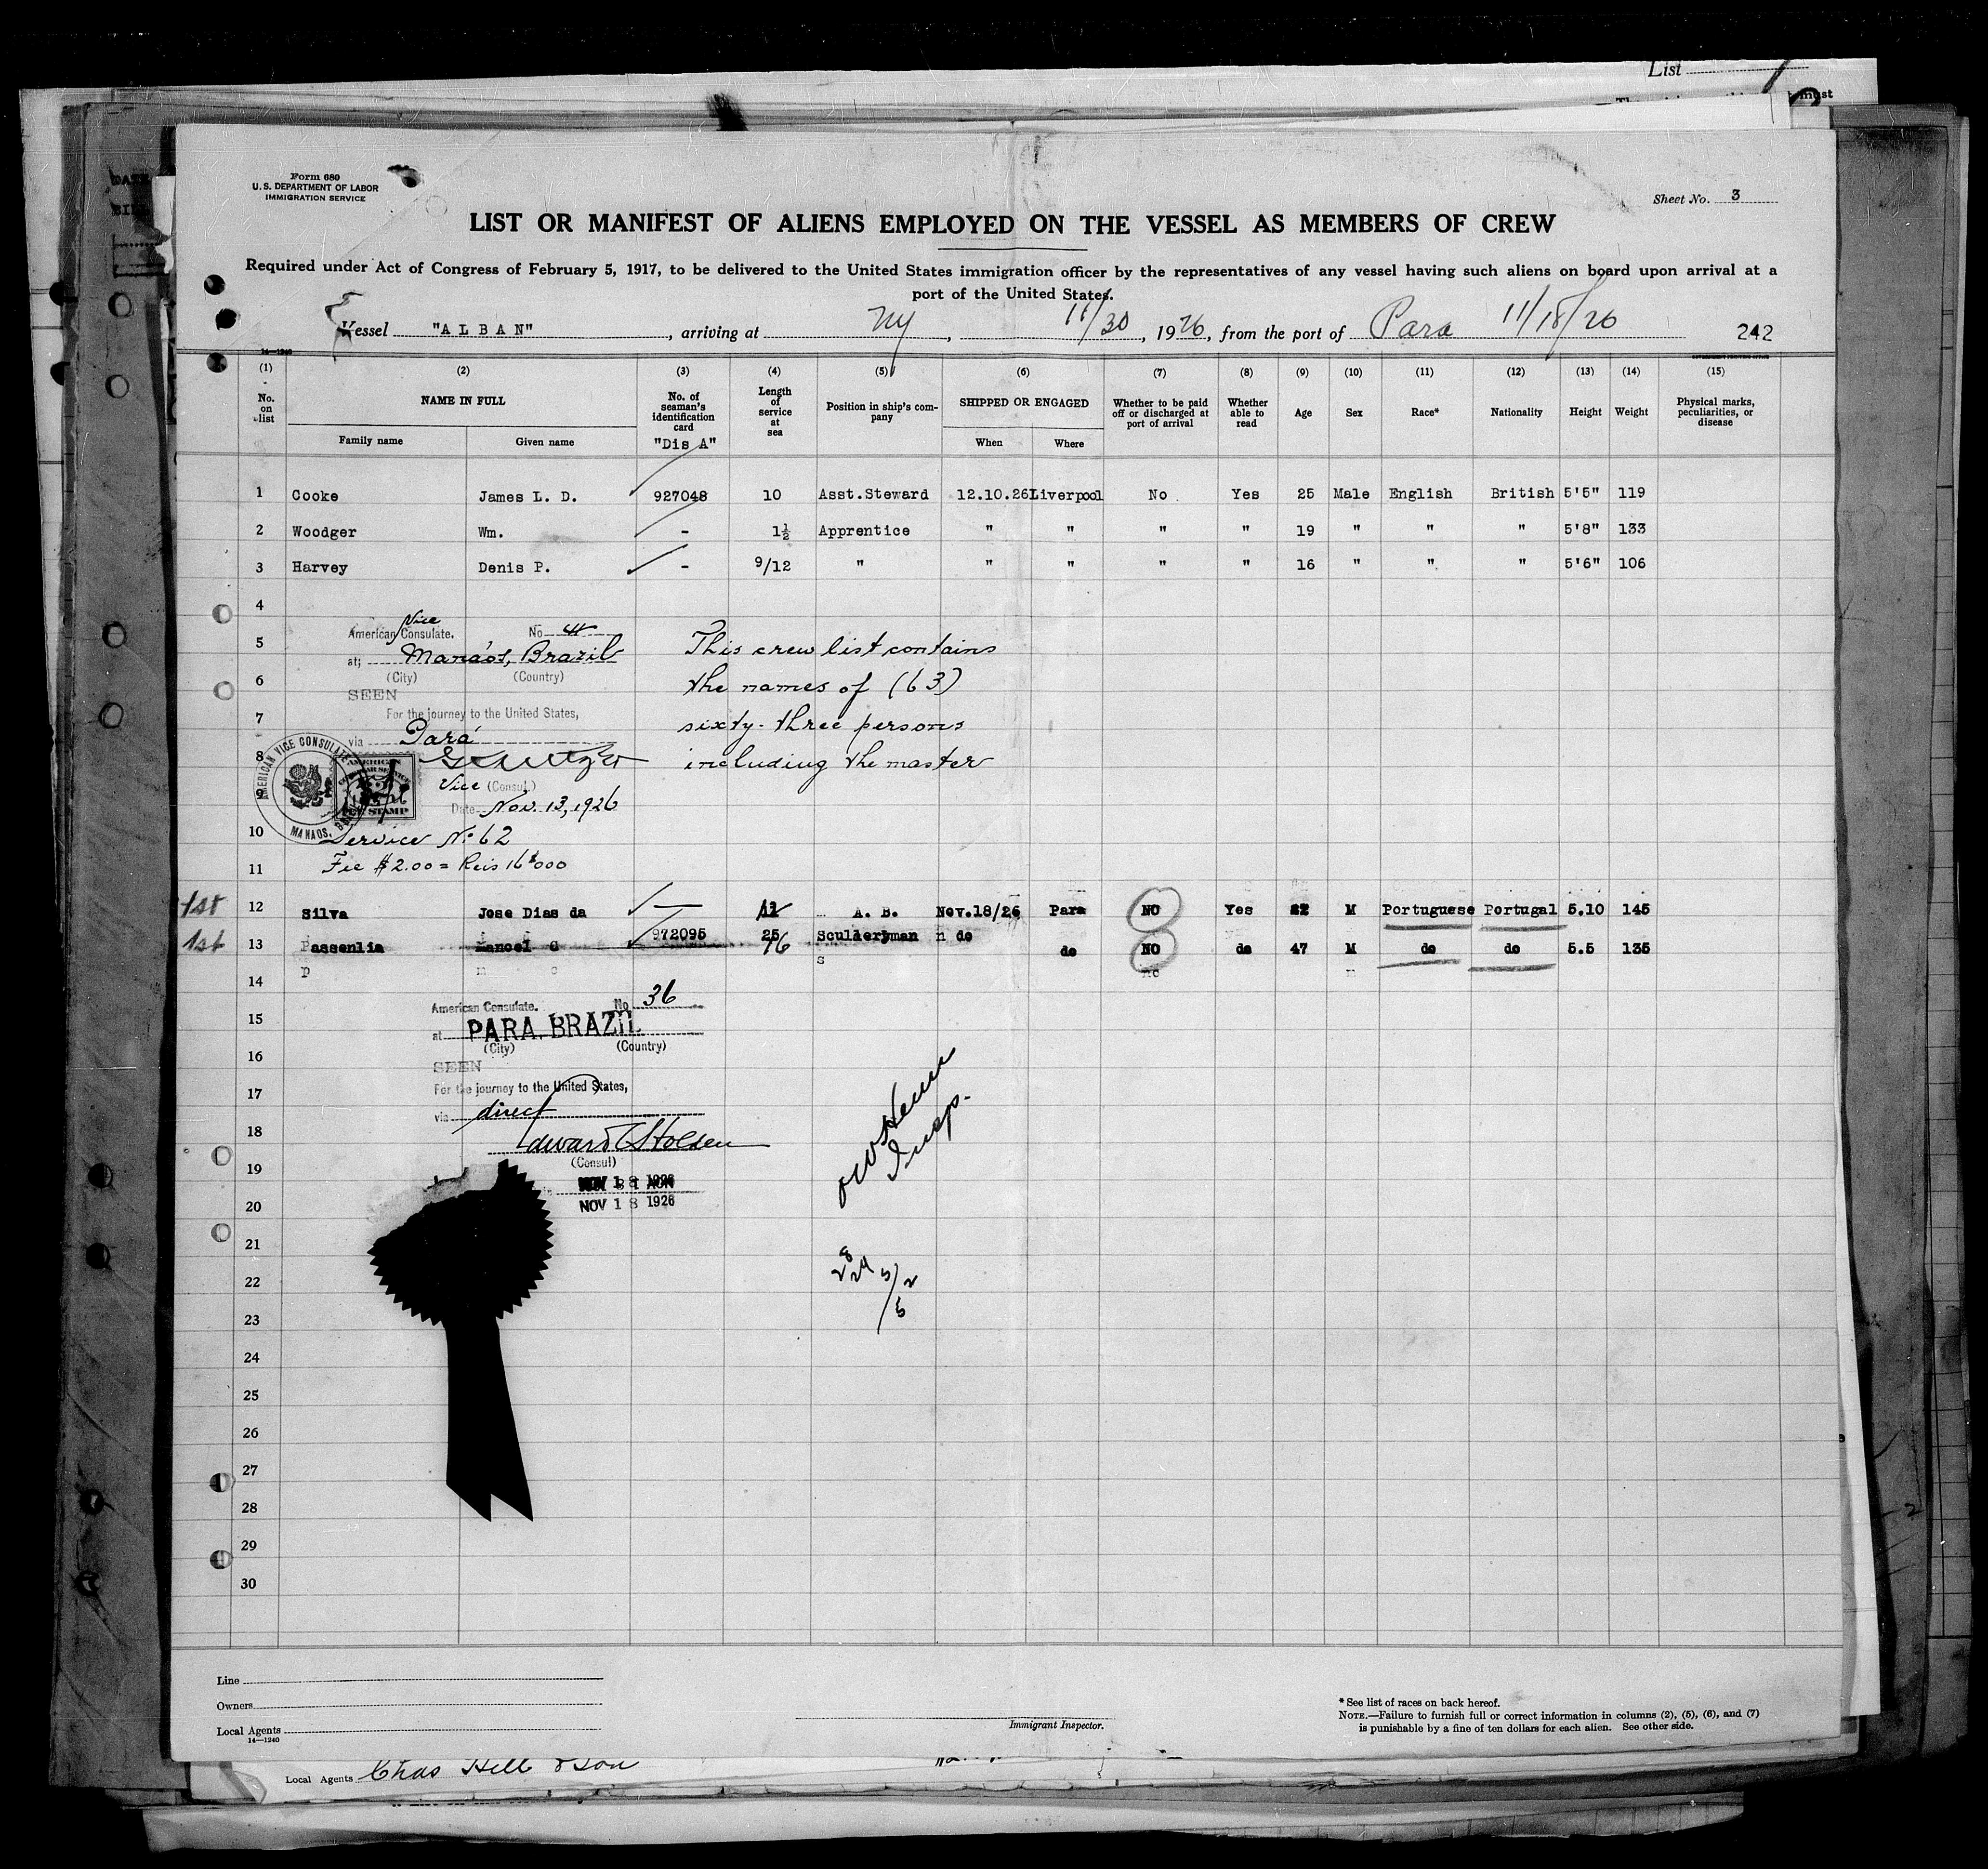 List
must
DATE
Form 680
U.S. DEPARTMENT OF LABOR
IMMIGRATION SERVICE
Sheet No. 3
LIST OR MANIFEST OF ALIENS EMPLOYED ON THE VESSEL AS MEMBERS OF CREW
Required under Act of Congress of February 5, 1917, to be delivered to the United States immigration officer by the representatives of any vessel having such aliens on board upon arrival at a
port of the United States.
Vessel "ALBAN", arriving at NY, 11/30, 1926, from the port of Para 11/18/26 242
14—1240
(1) (2) (3) (4) (5) (6) (7) (8) (9) (10) (11) (12) (13) (14) (15)
No. on list NAME IN FULL Family name Given name No. of seaman's identification card "Dis A" Length of service at sea Position in ship's company SHIPPED OR ENGAGED When Where Whether to be paid off or discharged at port of arrival Whether able to read Age Sex Race* Nationality Height Weight Physical marks, peculiarities, or disease
1 Cooke James L. D. 927048 10 Asst.Steward 12.10.26 Liverpool No Yes 25 Male English British 5'5" 119
2 Woodger Wm. - 1½ Apprentice " " " " 19 " " " 5'8" 133
3 Harvey Denis P. - 9/12 " " " " " 16 " " " 5'6" 106
4
5
6
7
8
9
10
11
American Vice Consulate. No
at; Manáos, Brazil
(City) (Country)
SEEN
For the journey to the United States,
via Pará
Vice (Consul.)
Date Nov. 13, 1926
AMERICAN VICE CONSULATE
MANAOS,
AMERICAN
FEE STAMP
Service No 62
Fee $2.00 = Reis 16$000
This crew list contains
the names of (63)
sixty-three persons
including the master
1st 12 Silva Jose Dias da — A. B. Nov.18/26 Para NO Yes M Portuguese Portugal 5.10 145
1st 13 Passenlia Manoel 972095 25 16 Sculleryman do do NO do 47 M do do 5.5 135
14
15
16
17
18
19
20
21
22
23
24
25
26
27
28
29
30
American Consulate. No 36
at PARA. BRAZIL
(City) (Country)
SEEN
For the journey to the United States,
via direct
(Consul)
NOV 18 1926
NOV 18 1926
Insp.
Line
Owners
Local Agents
14—1240
Immigrant Inspector.
* See list of races on back hereof.
NOTE.—Failure to furnish full or correct information in columns (2), (5), (6), and (7)
is punishable by a fine of ten dollars for each alien. See other side.
Local Agents Chas Hill & Son